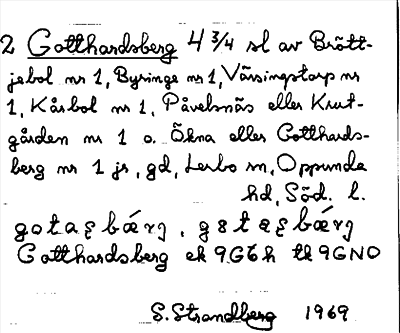 2 Gotthardsberg 4 3/4 sl av Brött-
jebol nr 1, Byringe nr 1, Väsingstorp nr
1, Kårbol nr 1, Påvelsnäs eller Krut-
gården nr 1 o. Ökna eller Gotthards-
berg nr 1 js, gd, Lerbo sn, Oppunda
hd, Söd. l.
Gotthardsberg ek 9G6h tk 9GNO
S. Strandberg 1969